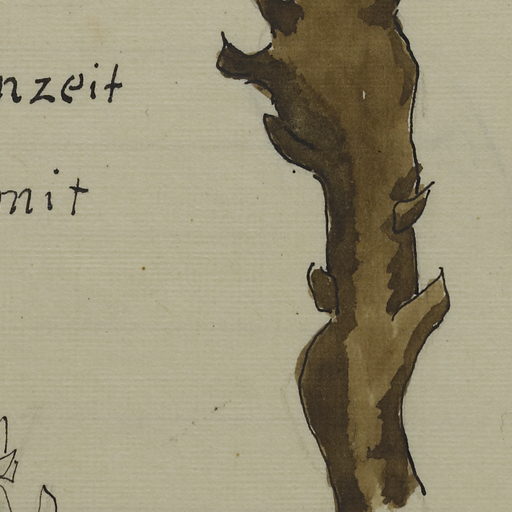 nzeit
mit